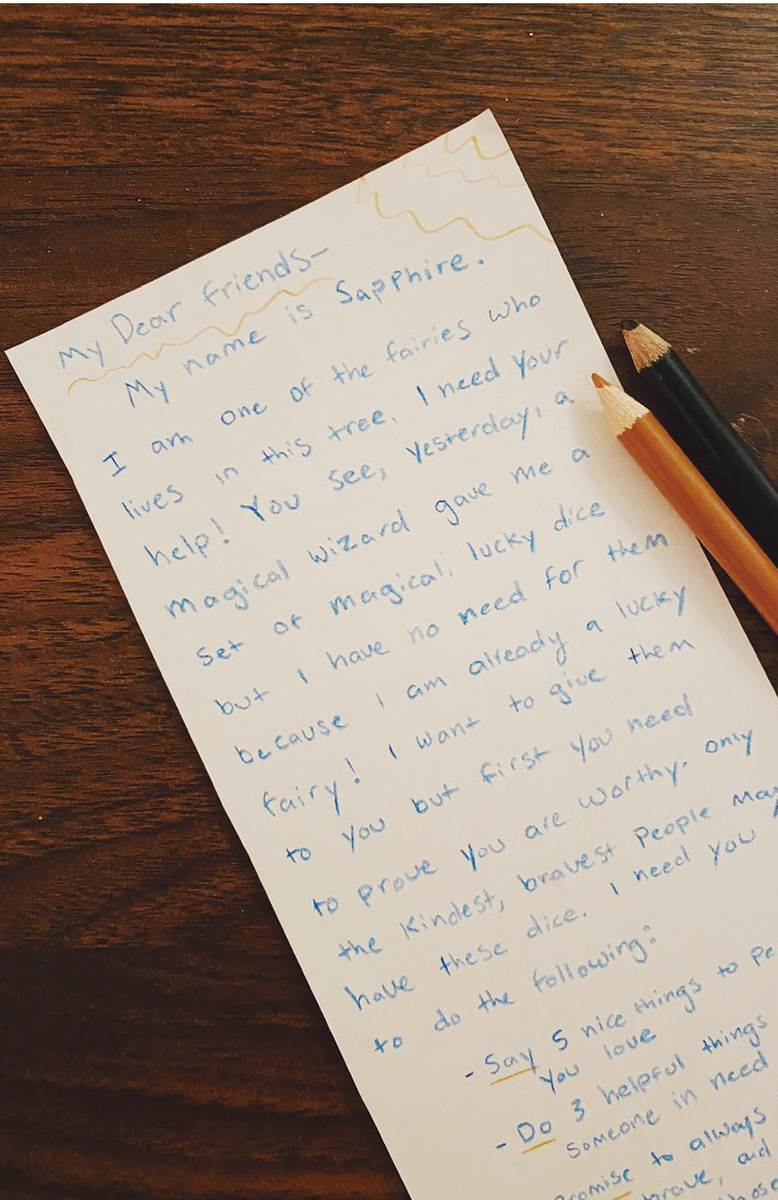 My Dear friends-
My name is Sapphire.
I am one of the fairies who
lives in this tree. I need your
help! You see, yesterday, a
magical wizard gave me a
set of magical, lucky dice
but I have no need for them
because I am already a lucky
fairy! I want to give them
to you but first you need
to prove you are worthy. Only
the kindest, bravest people may
have these dice. I need you
to do the following:
- Say 5 nice things to pe
you love
- Do 3 helpful things
someone in need
omise to always
brave, and